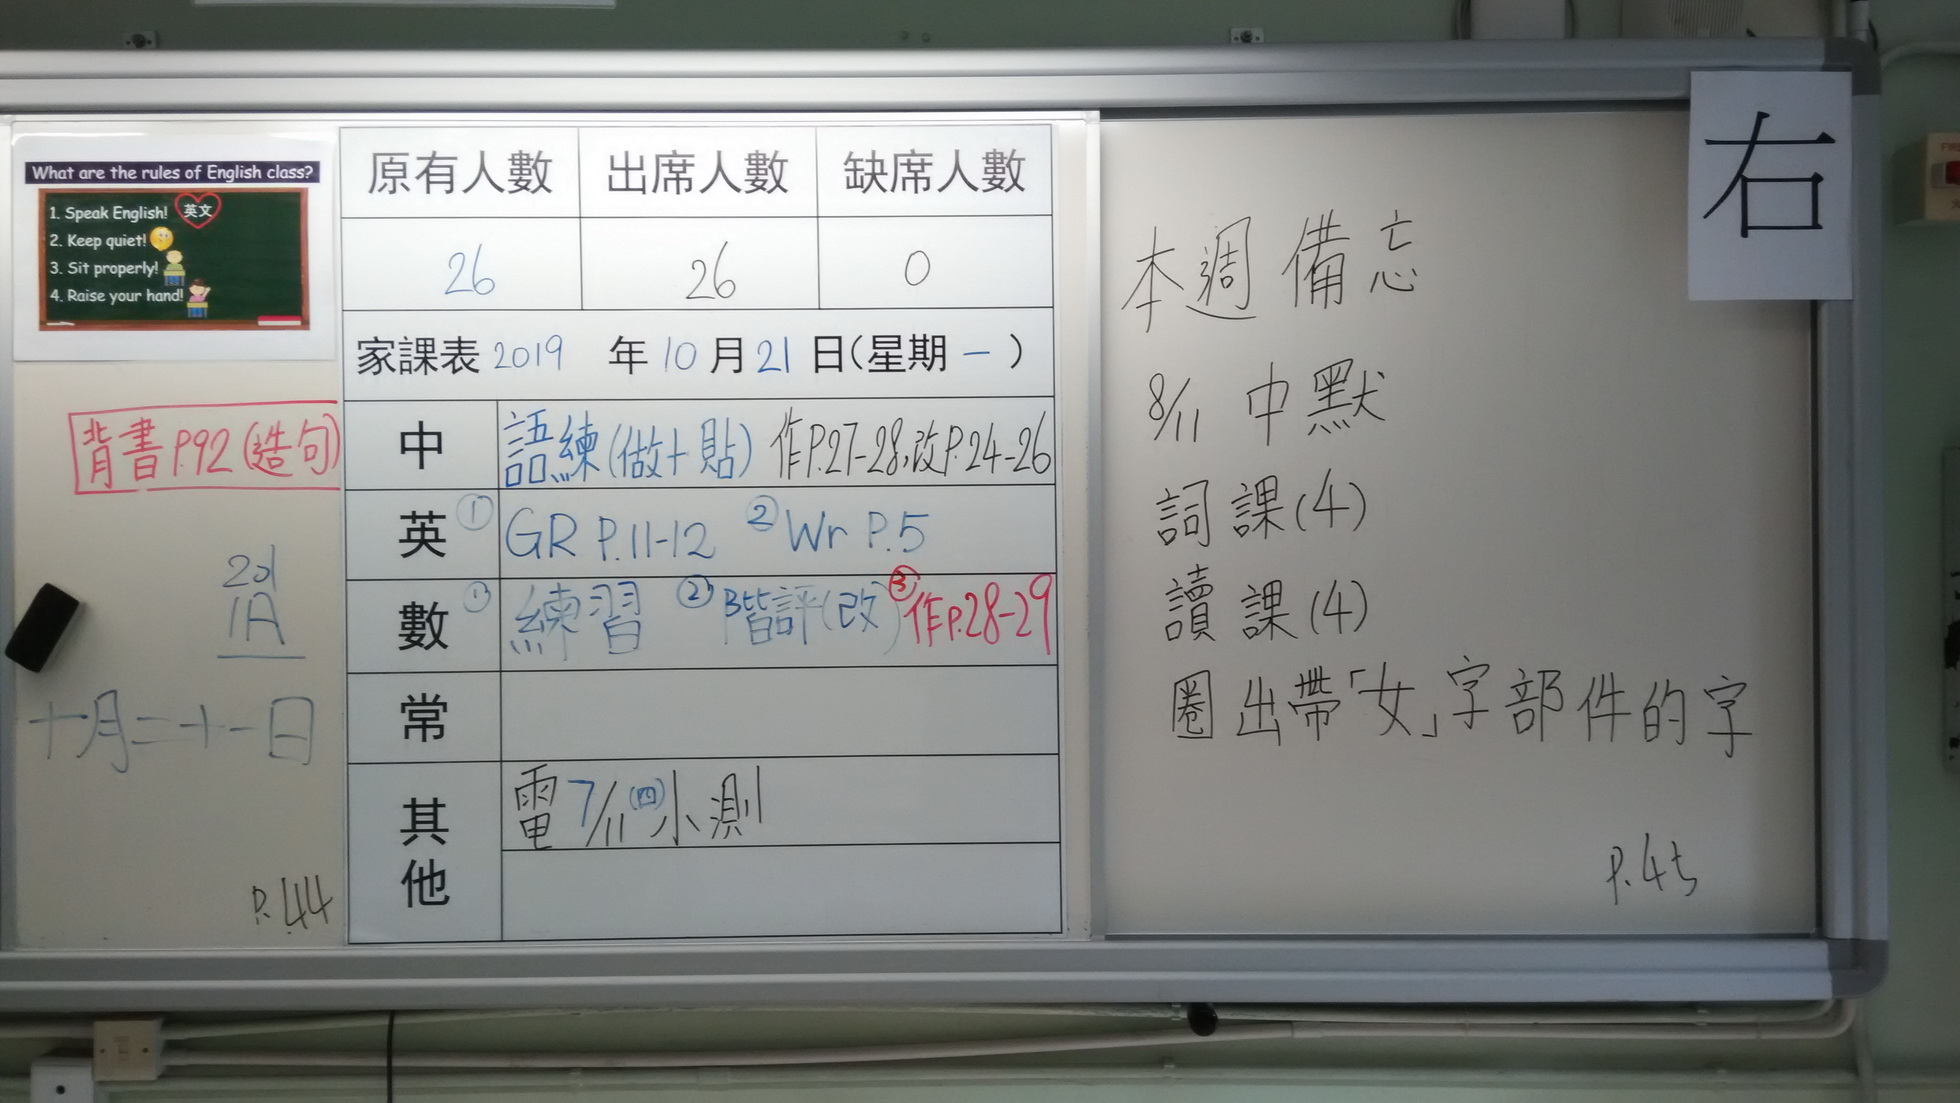 What are the rules of English class?
1. Speak English! 英文
2. Keep quiet!
3. Sit properly!
4. Raise your hand!
背書P.92(造句)
201
1A
十月二十一日
P.44
原有人數 出席人數 缺席人數
26 26 0
家課表 2019 年 10 月 21 日(星期 一 )
中 語練(做+貼) 作P.27-28,改P.24-26
英 ① GR P.11-12 ② Wr P.5
數 ① 練習 ② 階評(改) ③ 作P.28-29
常
其他 電 7/11 (四) 小測
右
本週備忘
8/11 中默
詞課(4)
讀課(4)
圈出帶「女」字部件的字
P.45
FIRE